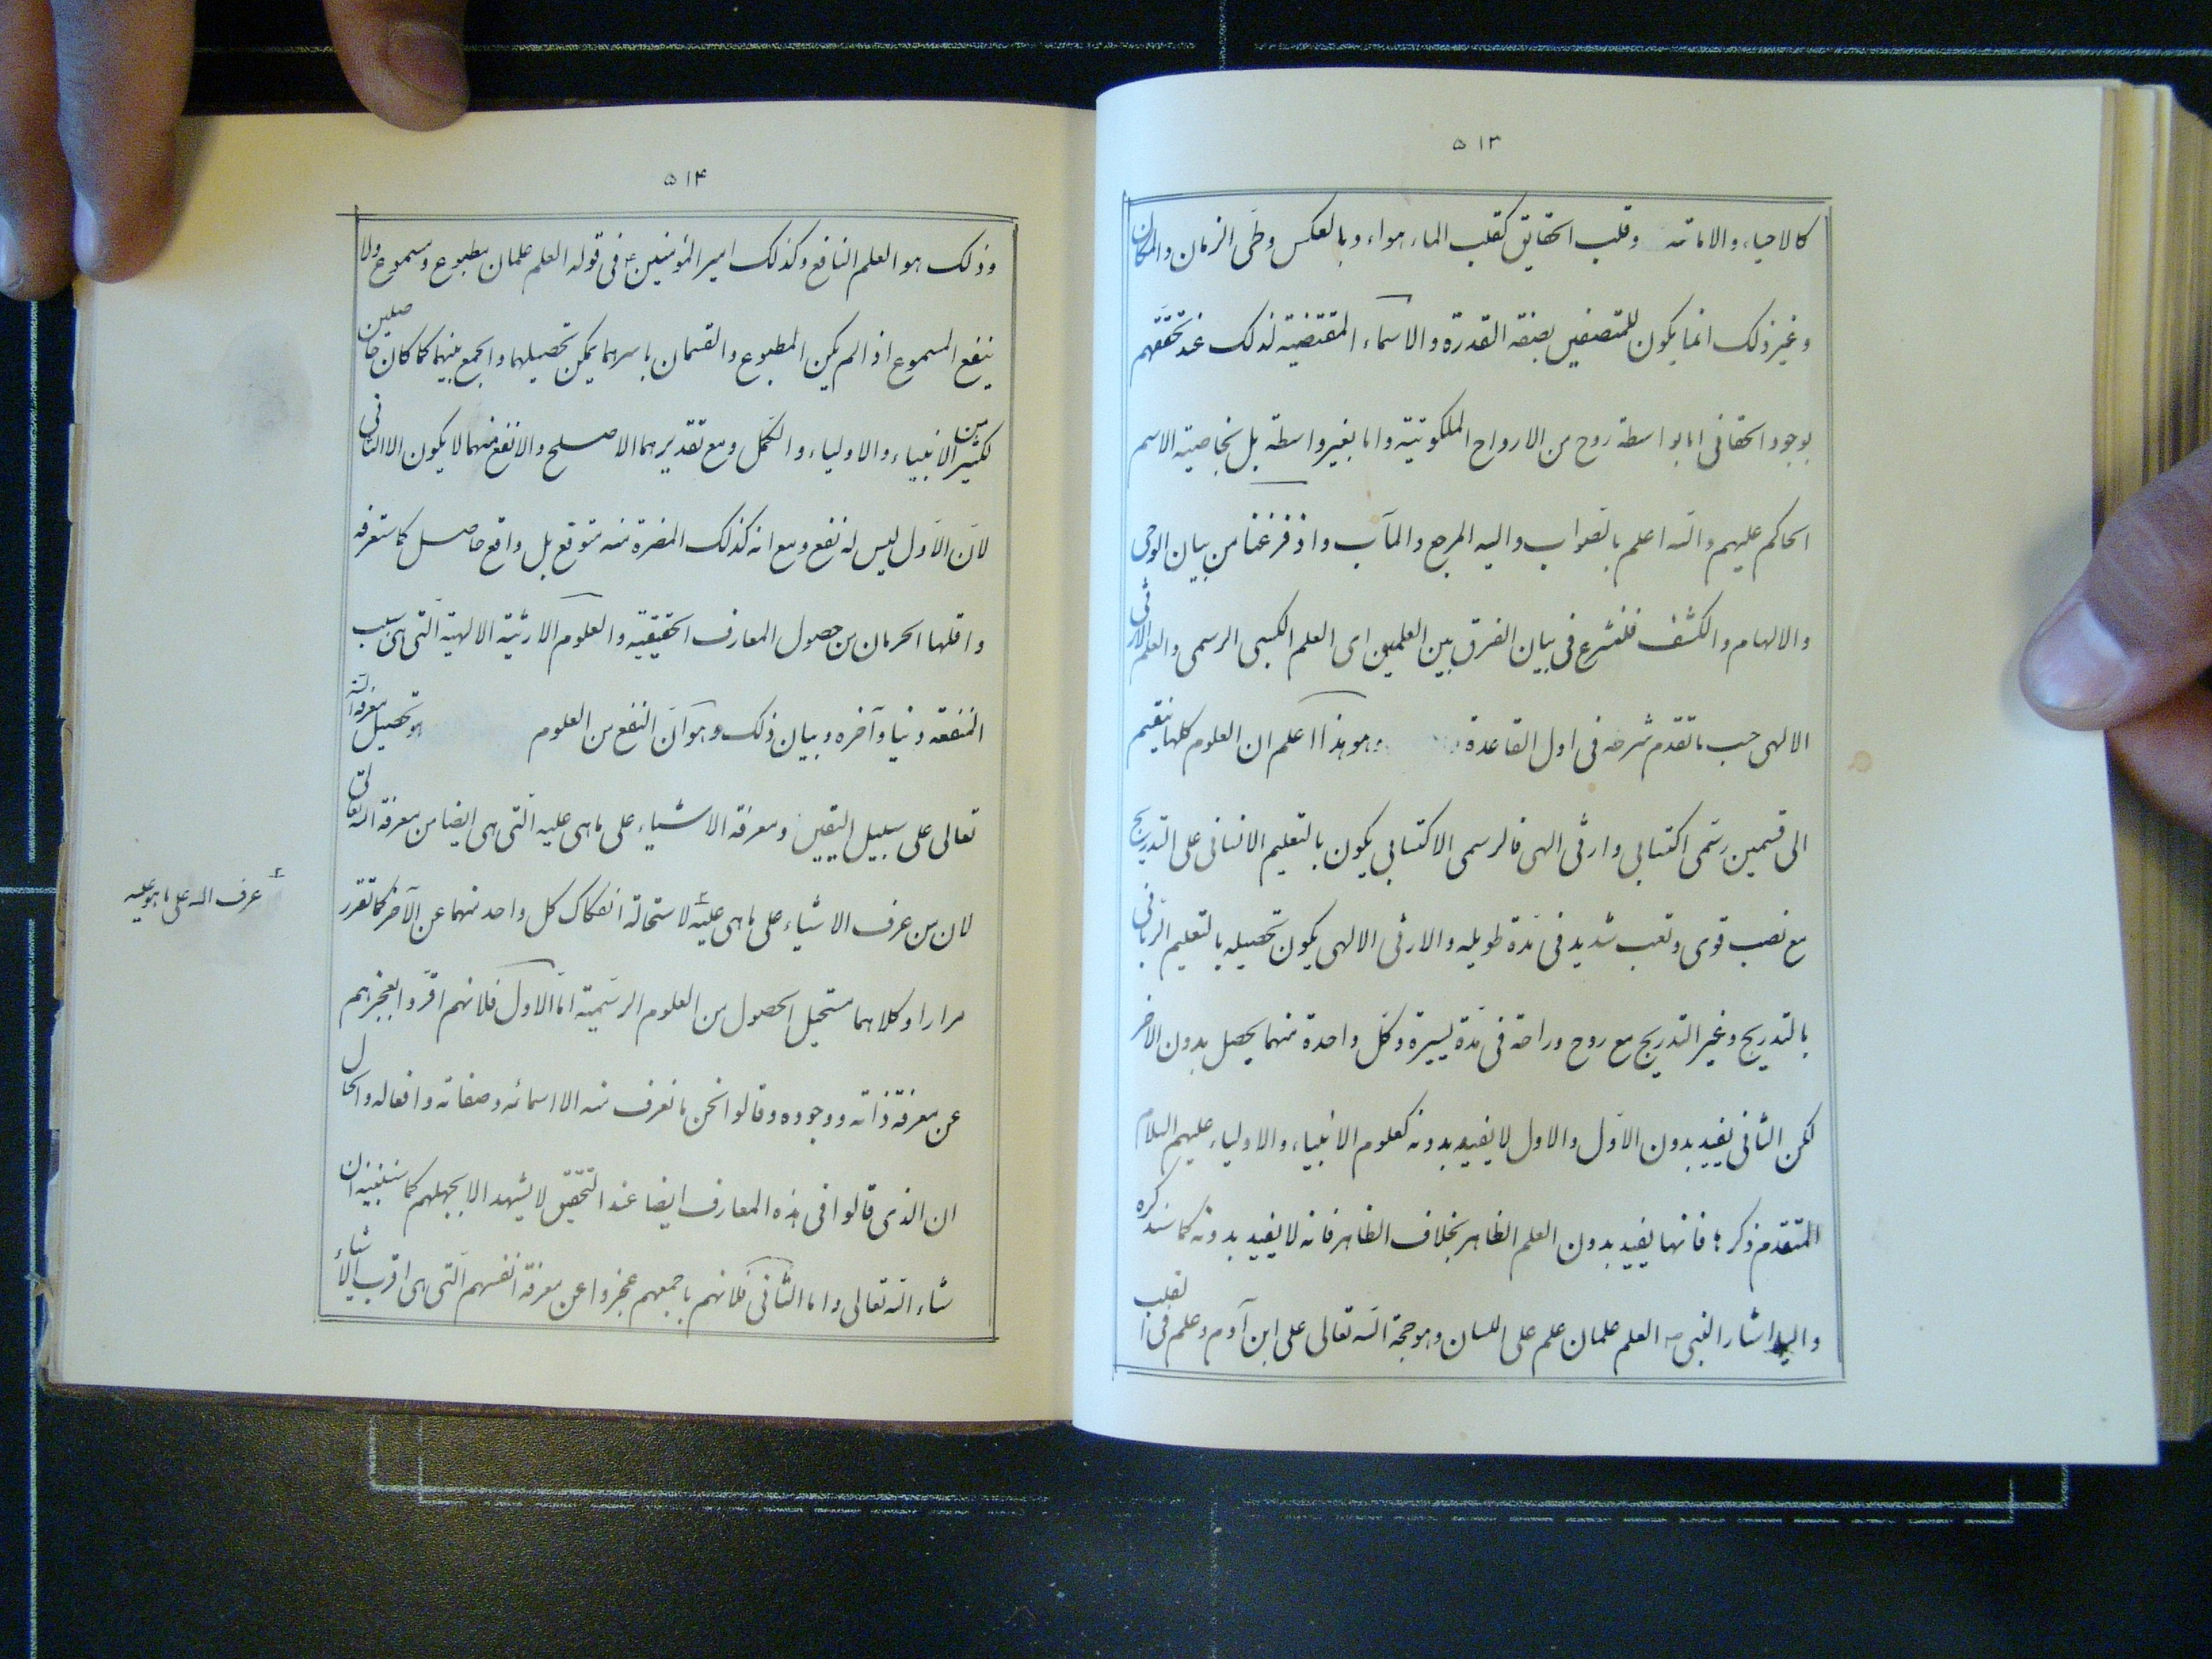 ۵۱۳
كالاحياء والاماتة وقلب الحقايق كقلب الماء هواء وبالعكس وطى الزمان والمكان
وغير ذلك انما يكون للمتصفين بصفة القدرة والاسماء المقتضية لذلك عند تحققهم
بوجود الحقانى اما بواسطة روح من الارواح الملكوتية واما بغير واسطة بل بخاصية الاسم
الحاكم عليهم والله اعلم بالصواب واليه المرجع والمآب واذ فرغنا من بيان الوحى
والالهام والكشف فلنشرع فى بيان الفرق بين العلمين اى العلم الكسبى الرسمى والعلم الارثى
الالهى حسب ما تقدم شرطه فى اول القاعدة وهو هذا اعلم ان العلوم كلها ينقسم
الى قسمين رسمى اكتسابى وارثى الهى فالرسمى الاكتسابى يكون بالتعليم الانسانى على التدريج
مع نصب قوى وتعب شديد فى مدة طويله والارثى الالهى يكون تحصيله بالتعليم الربانى
بالتدريج وغير التدريج مع روح وراحة فى مدة يسيرة وكل واحدة منهما يحصل بدون الاخر
لكن الثانى يفيد بدون الاول والاول لا يفيد بدونه كعلوم الانبياء والاولياء عليهم السلام
المتقدم ذكرها فانها يفيد بدون العلم الظاهر بخلاف الظاهر فانه لا يفيد بدونه كما سنذكره
واليه اشار النبى ص العلم علمان علم على اللسان وهو حجة الله تعالى على ابن آدم وعلم فى القلب
۵۱۴
وذلك هو العلم النافع وكذلك امير المؤمنين ع فى قوله العلم علمان مطبوع ومسموع ولا
ينفع المسموع اذا لم يكن المطبوع والقسمان باسرهما يمكن تحصيلهما والجمع بينهما كما كان حاصلين
لكثير من الانبياء والاولياء والكمل ومع تقديرهما الاصلح والانفع منهما لا يكون الا الثانى
لان الاول ليس له نفع ومع انه كذلك المضرة منه متوقع بل واقع حاصل كما ستعرفه
واقلها الحرمان من حصول المعارف الحقيقية والعلوم الارثية الالهية التى هى سبب
المنفعة دنيا وآخره وبيان ذلك وهو ان النفع من العلوم هو تحصيل معرفة الله
تعالى على سبيل اليقين ومعرفة الاشياء على ماهى عليه التى هى ايضا من معرفة الله تعالى
لان من عرف الاشياء على ماهى عليه لاستحالة انفكاك كل واحد منهما عن الآخر كما تقرر
عرف الله على ما هو عليه
مرارا وكلاهما مستحيل الحصول من العلوم الرسمية اما الاول فلانهم اقروا بعجزهم
عن معرفة ذاته ووجوده وقالوا نحن ما نعرف منه الا اسمائه وصفاته وافعاله والحال
ان الذى قالوا فى هذه المعارف ايضا عند التحقيق لا يشهد الا بجهلهم كما سنبينه ان
شاء الله تعالى واما الثانى فلانهم باجمعهم عجزوا عن معرفة انفسهم التى هى اقرب الاشياء